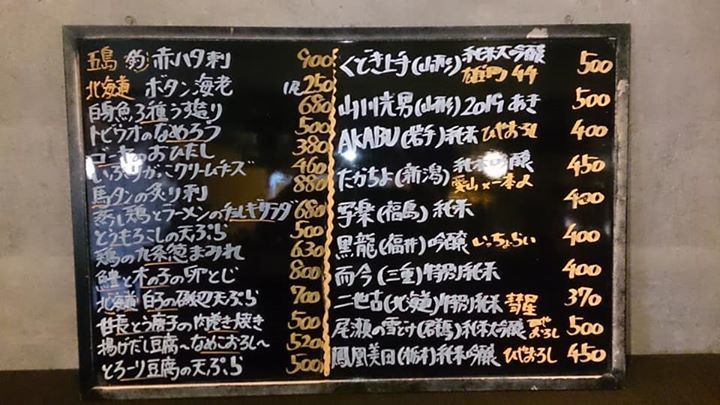 五島 釣 赤ハタ刺 900
北海道 ボタン海老 1尾250
白身魚3種うす造り 680
トビウオのなめろう 500
ゴーヤのおひたし 380
いぶりがっこクリームチーズ 460
馬タンの炙り刺 880
蒸し鶏とラーメンのねぎサラダ 680
とうもろこしの天ぷら 500
鶏の九条葱まみれ 630
鱧と木の子の卵とじ 800
北海道 白子の磯辺天ぷら 700
とう腐子の肉巻き焼き 500
揚げだし豆腐〜なめこおろし〜 520
とろーり豆腐の天ぷら 500
くどき上手(山形)純米大吟醸 雄町44 500
山川光男(山形)2019あき 500
AKABU(岩手)純米 ひやおろし 400
たかちよ(新潟)純米吟醸 愛山×一本〆 450
写楽(福島)純米 400
黒龍(福井)吟醸 いっちょらい 400
而今(三重)特別純米 400
二世古(北海道)特別純米 彗星 370
尾瀬の雪どけ(群馬)純米大吟醸 ひやおろし 500
鳳凰美田(栃木)純米吟醸 ひやおろし 450